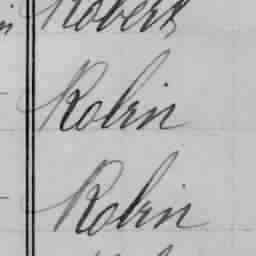 Robert
Robin
Robin